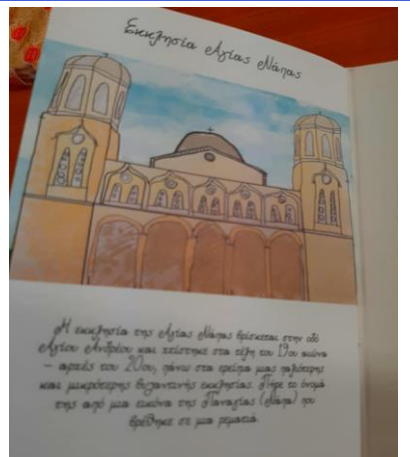 Εκκλησία Αγίας Νάπας
Η εκκλησία της Αγίας Νάπας βρίσκεται στην οδό
Αγίου Ανδρέου και χτίστηκε στα τέλη του 19ου αιώνα
– αρχές του 20ου, πάνω στα ερείπια μιας παλιότερης
και μικρότερης βυζαντινής εκκλησίας. Πήρε το όνομά
της από μια εικόνα της Παναγίας (Νάπα) που
βρέθηκε σε μια ρεματιά.